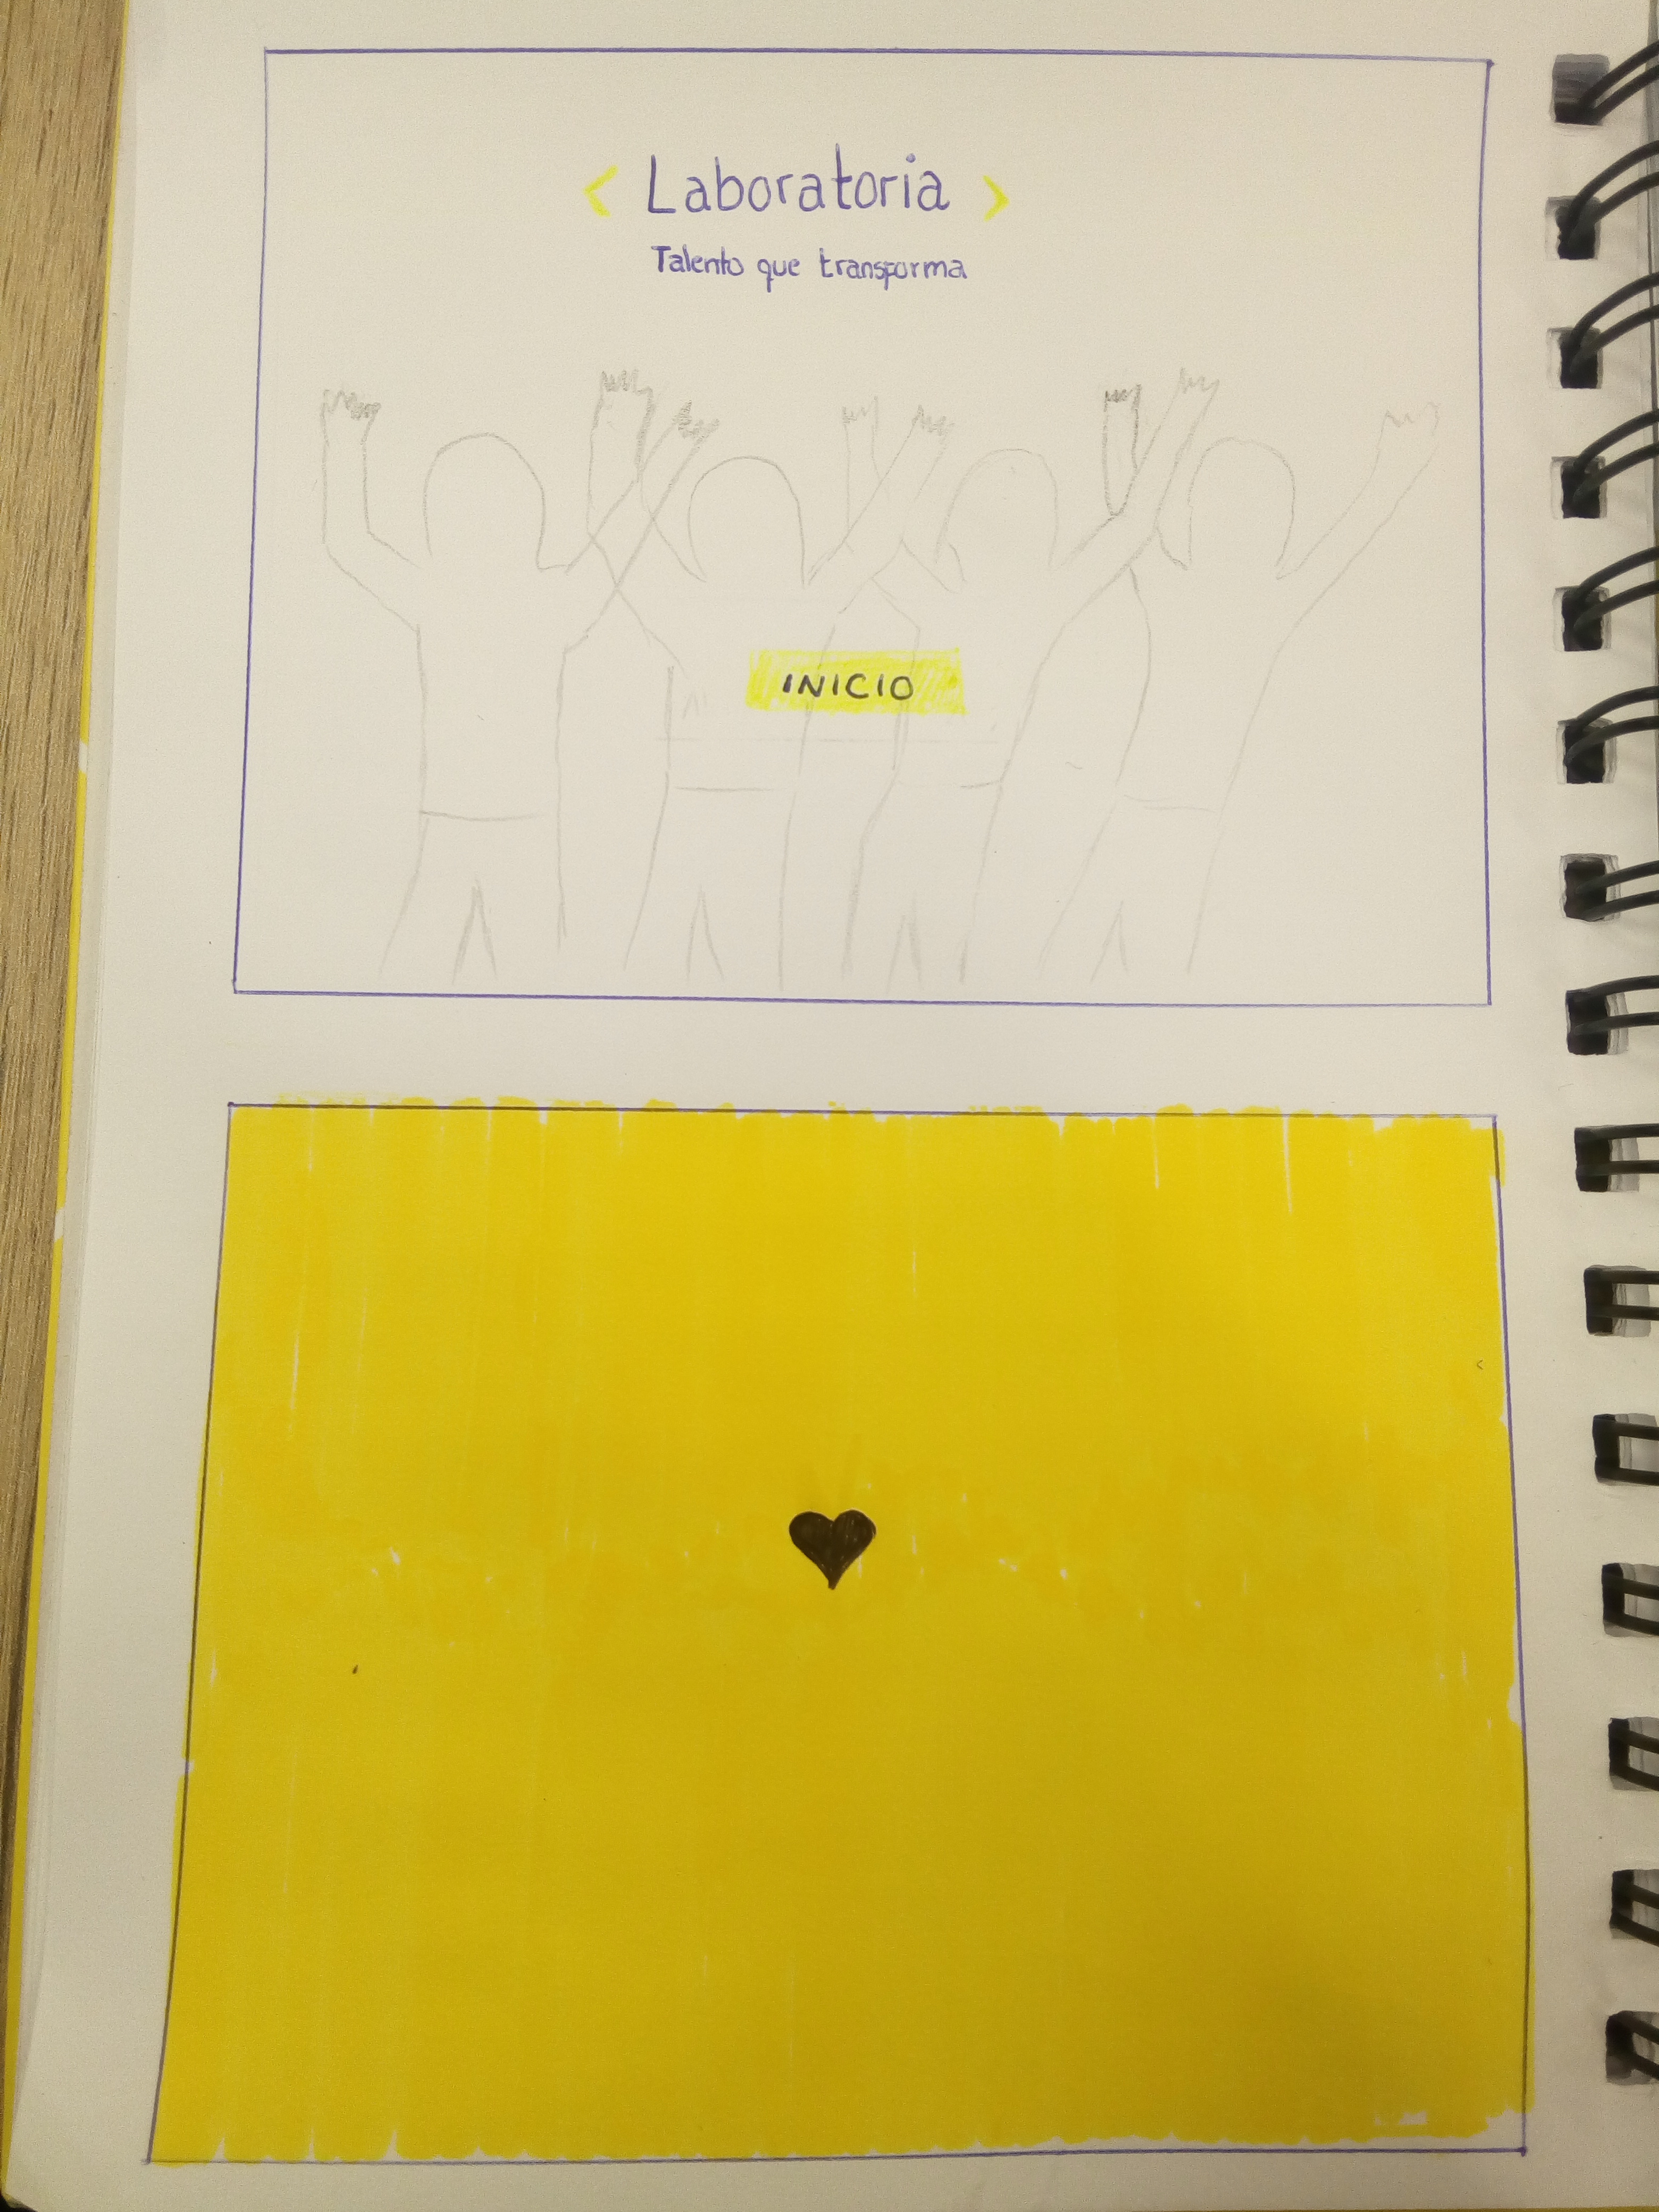 < Laboratoria >
Talento que transforma
INICIO